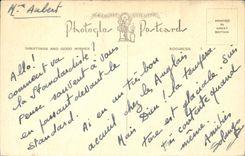 Mme Aubert
Photoglaze Postcards
GREETINGS AND GOOD WISHES
ADDRESS
PRINTED IN
GREAT BRITAIN
Allo!
comment va
la Standardiste!
Pense souvent à vous
en passant devant le
standard.
Ai eu un très bon
accueil chez les Anglais
Mais Dieu! la température
est glaciale. Suis
très contente quand
même
Amitiés